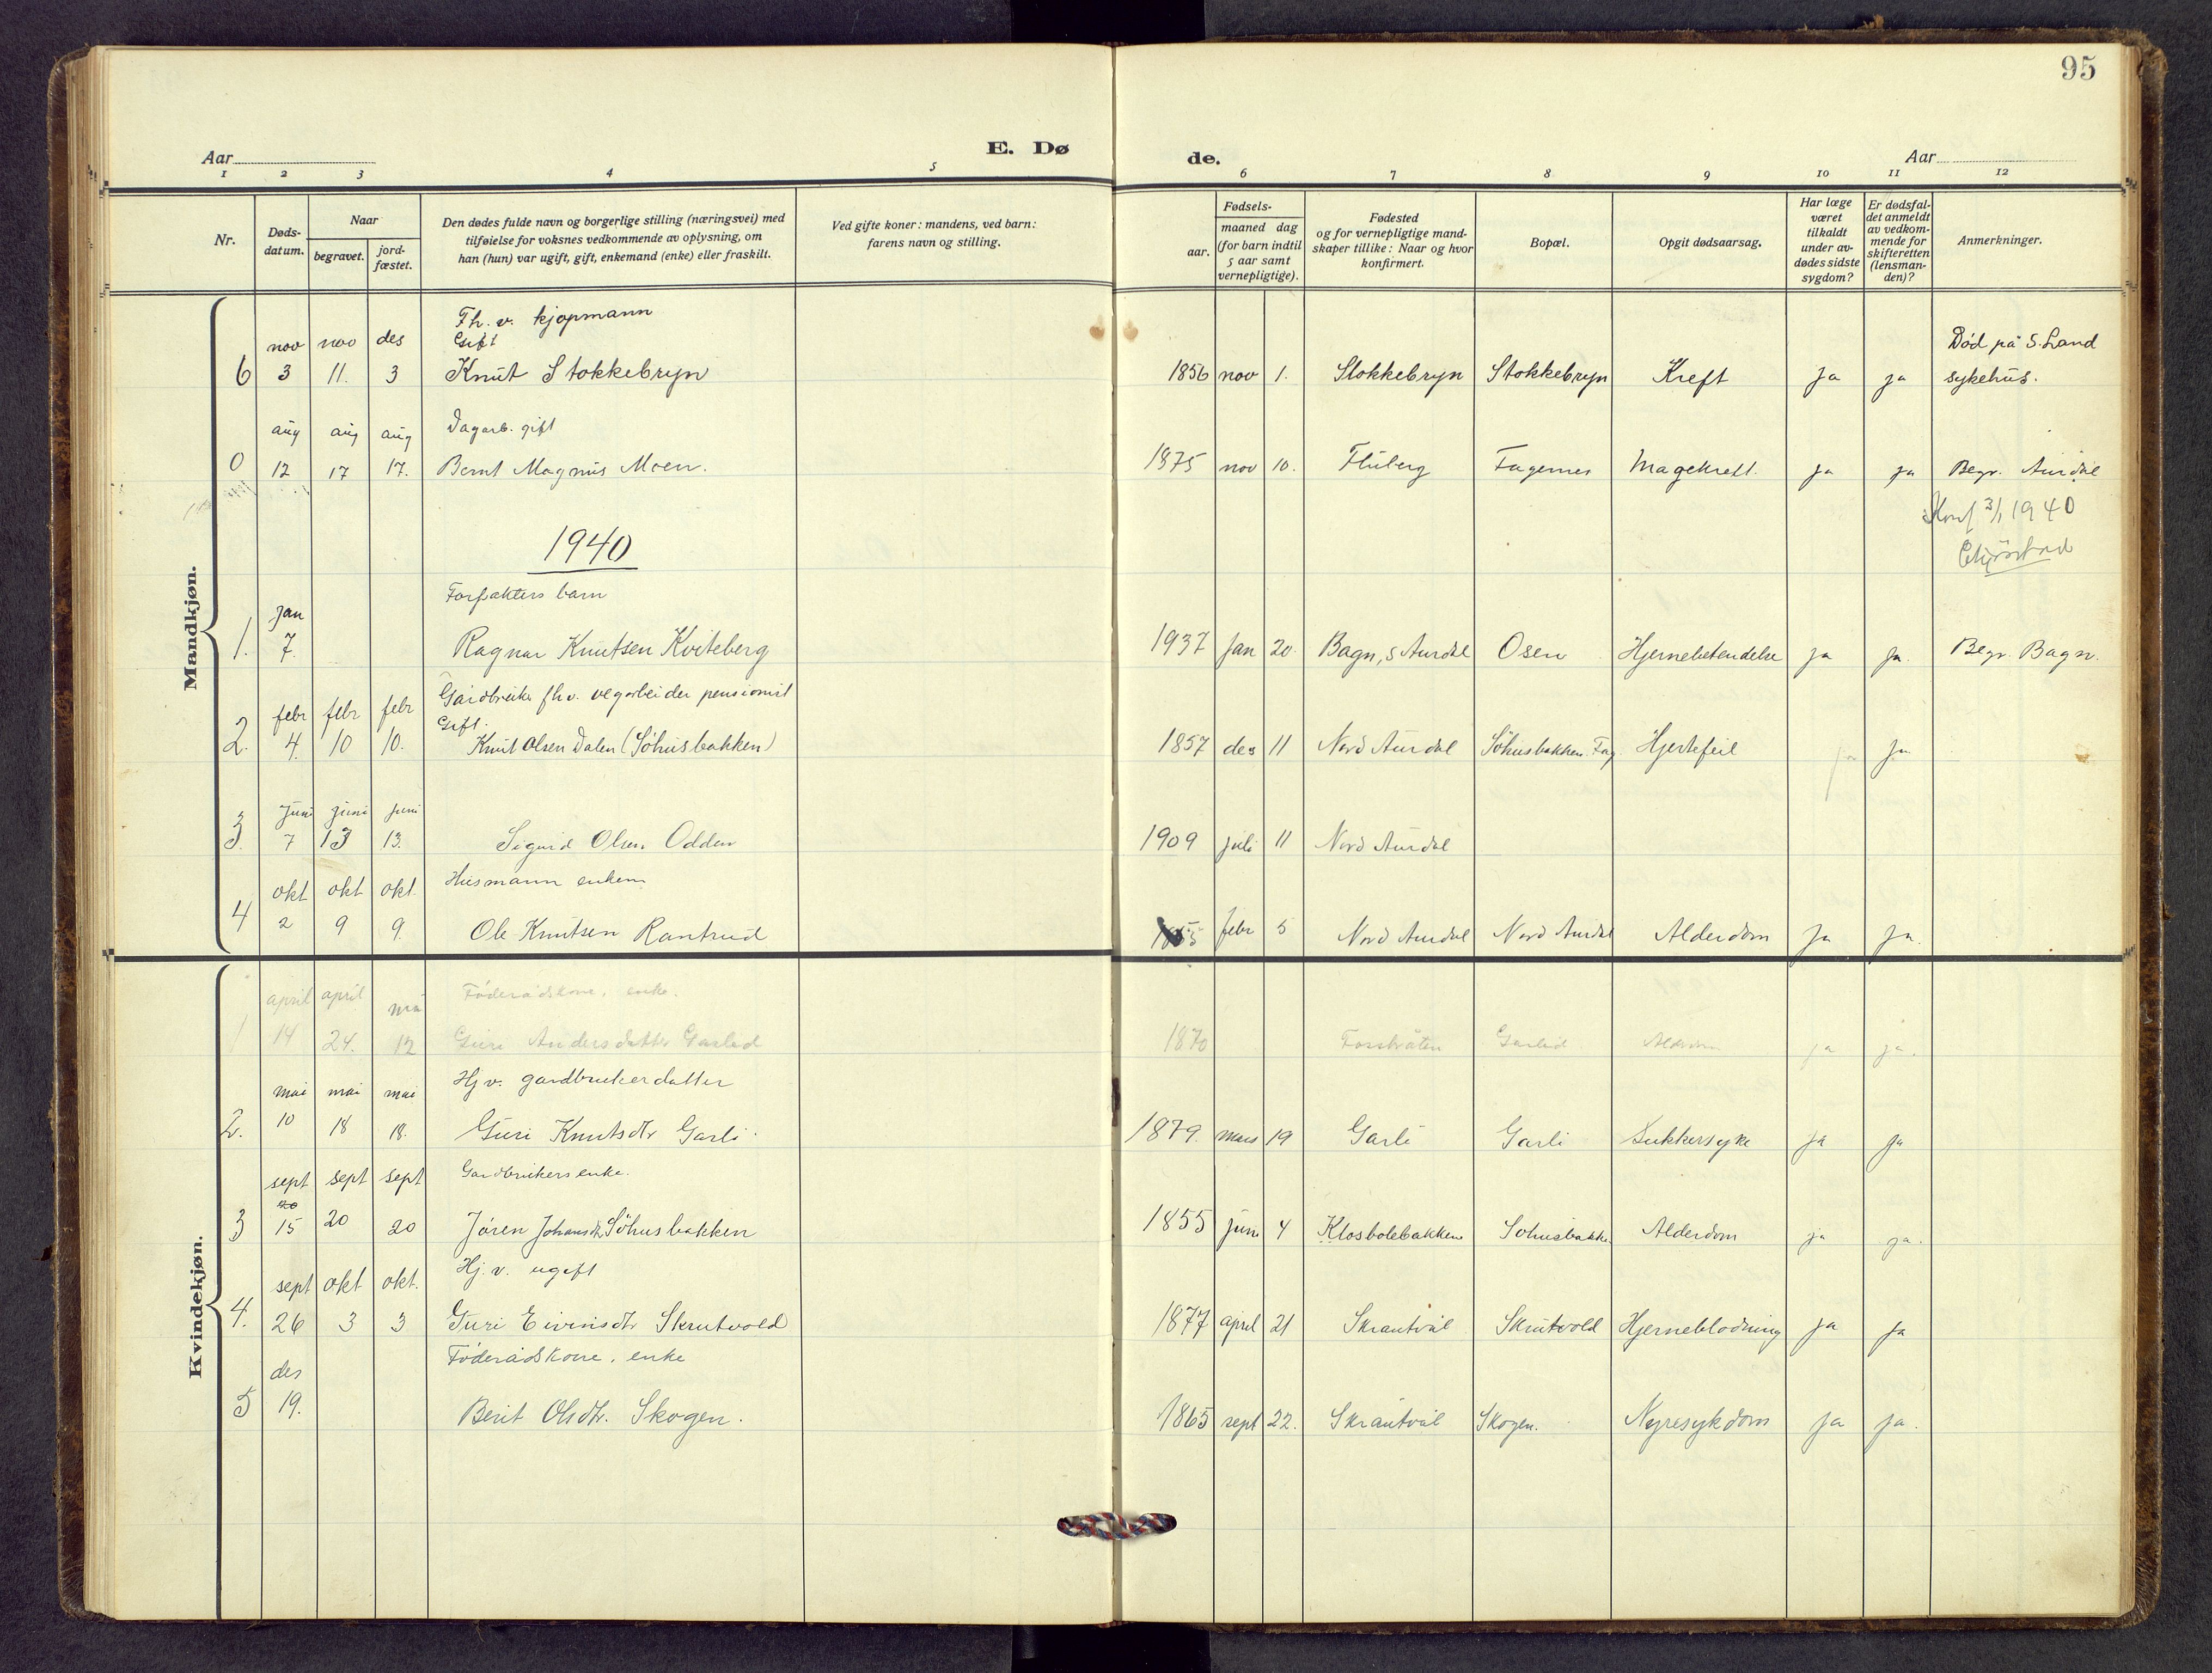 95
Aar
E. Dø
de.
Aar
1 2 3 4 5 6 7 8 9 10 11 12
Nr.
Døds-
datum.
Naar
begravet.
jord-
fæstet.
Den dødes fulde navn og borgerlige stilling (næringsvei) med
tilføielse for voksnes vedkommende av oplysning, om
han (hun) var ugift, gift, enkemand (enke) eller fraskilt.
Ved gifte koner: mandens, ved barn:
farens navn og stilling.
Fødsels-
aar.
maaned dag
(for barn indtil
5 aar samt
vernepligtige).
Fødested
og for vernepligtige mand-
skaper tillike: Naar og hvor
konfirmert.
Bopæl.
Opgit dødsaarsag.
Har læge
været
tilkaldt
under av-
dødes sidste
sygdom?
Er dødsfal-
det anmeldt
av vedkom-
mende for
skifteretten
(lensman-
den)?
Anmerkninger.
Mandkjøn.
Fh. v. kjøpmann
nov nov des Gift Død på S. Land
6 3 11. 3 Knut Stokkebryn 1856 nov 1. Stokkebryn Stokkebryn Kreft ja ja sykehus.
aug aug aug Dagarb. gift
0 12 17 17. Bernt Magnus Moen. 1875 nov 10. Fluberg Fagernes Magekreft. ja ja Begr. Aurdal
1940
3/1 1940
Forpakters barn
jan
1. 7. Ragnar Knutsen Kviteberg 1937 jan 20. Bagn, S Aurdal Osen Hjernebetendelse ja ja. Begr. Bagn.
Gardbruker fhv. vegarbeider pensionist
febr febr febr Gift.
2. 4. 10 10. Knut Olsen Dalen (Söhusbakken) 1857 des 11 Nord Aurdal Söhusbakken Fag. Hjertefeil ja ja.
juni juni juni
3. 7 13 13. Sigurd Olsen Odden 1909 juli 11 Nord Aurdal
okt okt okt. Husmann enkem.
4 2 9 9. Ole Knutsen Rantrud febr 5 Nord Aurdal Nord Aurdal Alderdom ja ja.
Kvindekjøn.
april april mai Föderådskone, enke.
1 14 24. 12 Guri Andersdatter Garlid 1870 Garlid Alderdom ja ja.
mai mai mai Hj v. gardbrukerdatter
2. 10 18 18. Guri Knutsdtr Garli. 1879. mars 19 Garli Garli Sukkersyke ja ja
sept sept sept Gardbrukers enke.
20
3 15 20 20 Jören Johansdtr Söhusbakken 1855 juni 4 Klosbolebakken Söhusbakken Alderdom ja ja.
sept okt okt. Hj. v. ugift
4. 26 3 3 Guri Eivinsdtr Skrutvold 1877 april 21 Skrautvål Skrutvold Hjerneblødning ja ja
des Föderådskone, enke
5 19. Berit Olsdtr. Skogen. 1865 sept 22. Skrautvål Skogen. Nyresykdom ja ja.